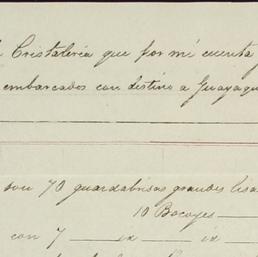 Cristaleria que por mi cuenta
embarcados con destino a Guayaqu
son 70 guardabrisas grandes lisa
10 Bocoyes
con 7 ix ix